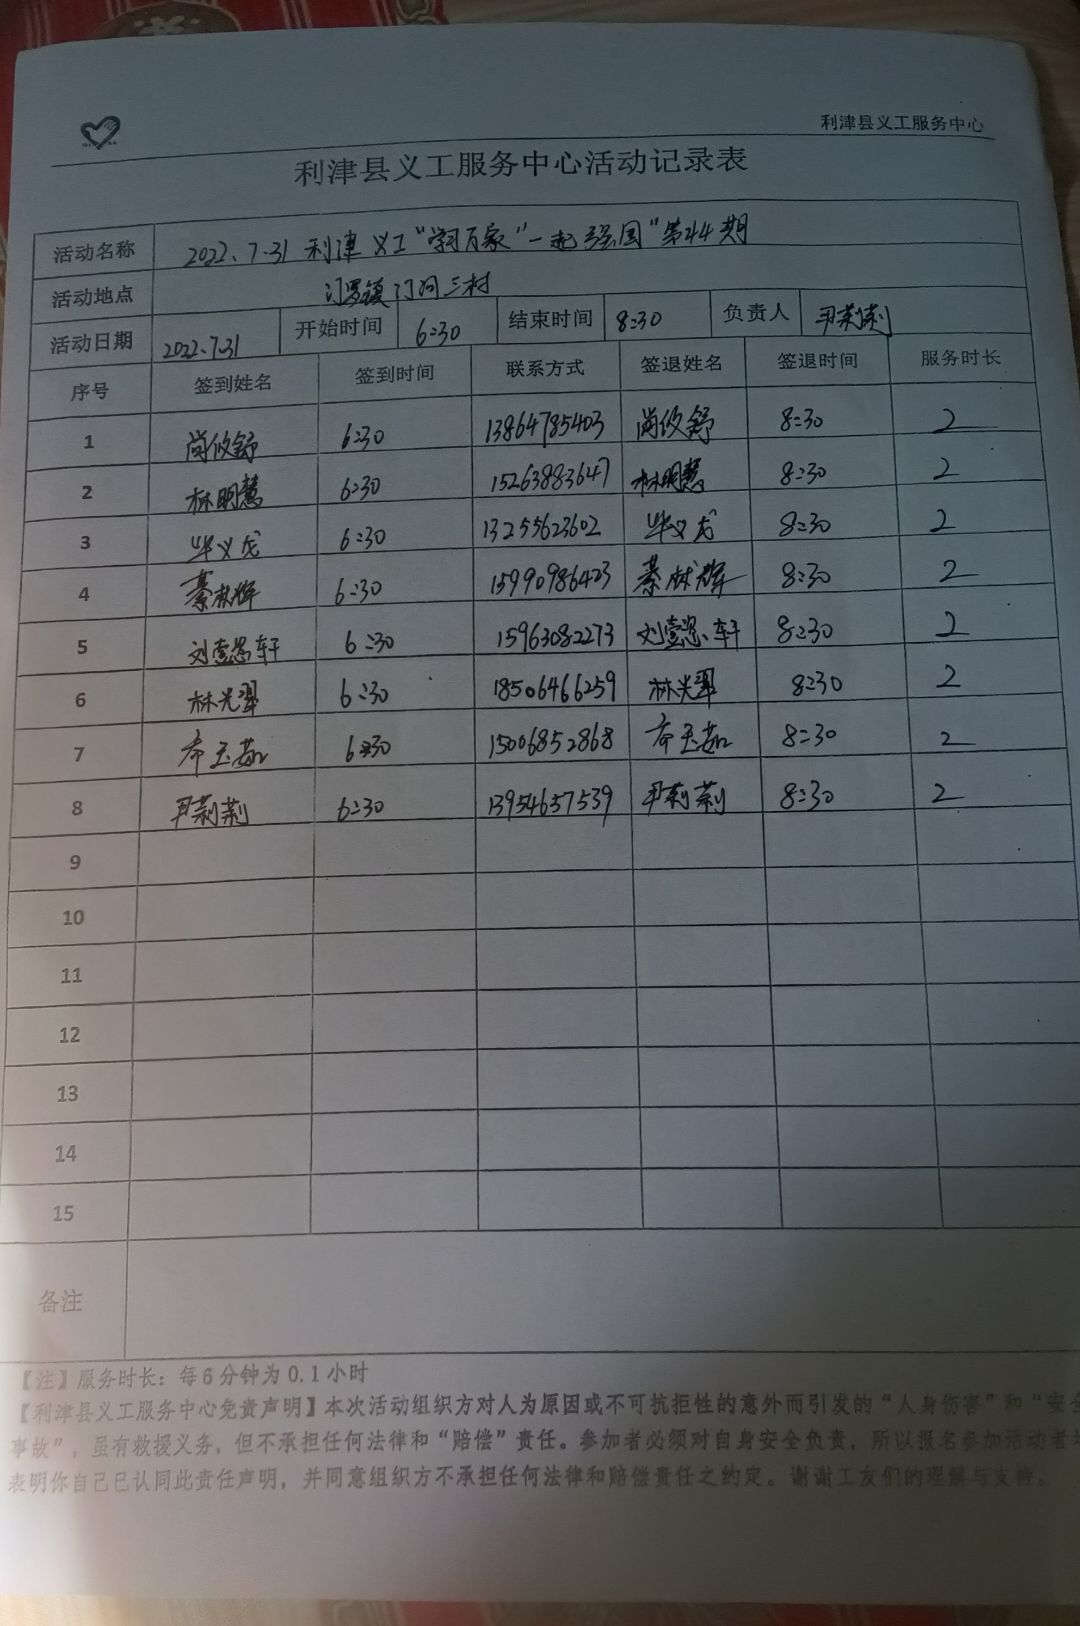 利津县义工服务中心
利津县义工服务中心活动记录表
活动名称 2022.7.31 利津义工“学习百家”一起强国”第44期
活动地点 汀罗镇汀河三村
活动日期 2022.7.31 开始时间 6:30 结束时间 8:30 负责人 尹莉莉
序号 签到姓名 签到时间 联系方式 签退姓名 签退时间 服务时长
1 尚攸舒 6:30 13864785403 尚攸舒 8:30 2
2 林明慧 6:30 15263883647 林明慧 8:30 2
3 毕义龙 6:30 13255623602 毕义龙 8:30 2
4 綦林辉 6:30 15990986423 綦林辉 8:30 2
5 刘壹轩 6:30 15963082273 刘壹轩 8:30 2
6 林光翠 6:30 18506466259 林光翠 8:30 2
7 玉茹 6:30 15006852868 玉茹 8:30 2
8 尹莉莉 6:30 13954657539 尹莉莉 8:30 2
9
10
11
12
13
14
15
备注
【注】服务时长：每6分钟为0.1小时
【利津县义工服务中心免责声明】本次活动组织方对人为原因或不可抗拒性的意外而引发的“人身伤害”和“安全
事故”，虽有救援义务，但不承担任何法律和“赔偿”责任。参加者必须对自身安全负责，所以报名参加活动者
表明你自己已认同此责任声明，并同意组织方不承担任何法律和赔偿责任之约定。谢谢工友们的理解与支持。